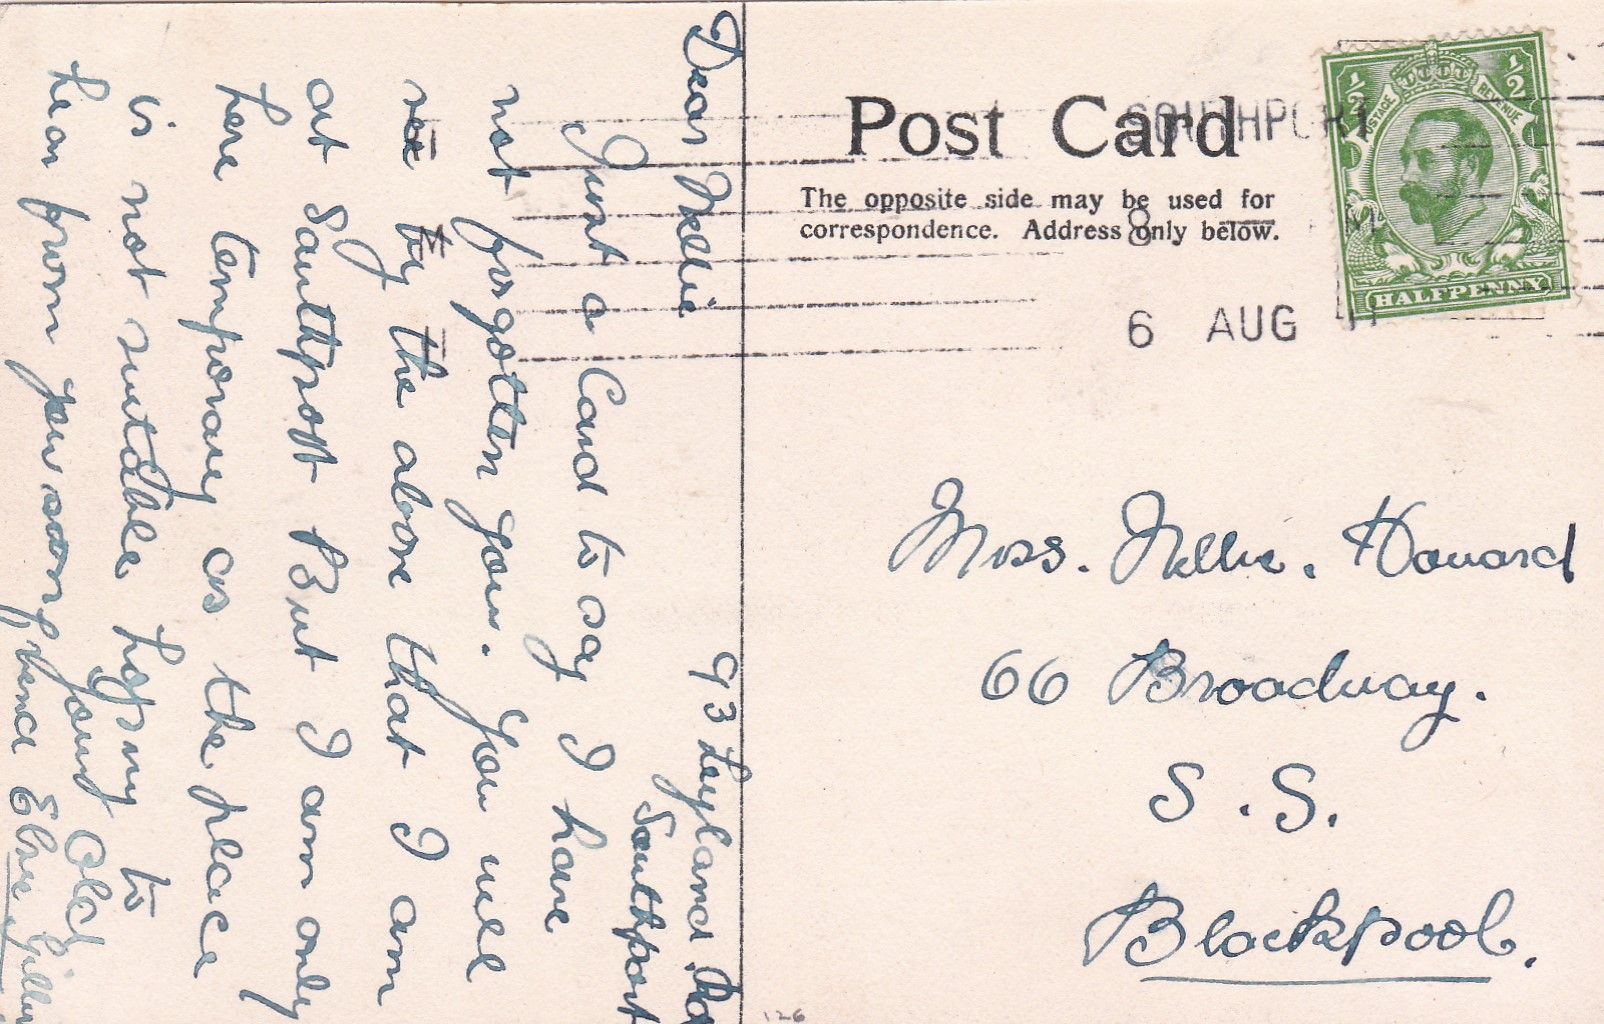 Post Card
The opposite side may be used for
correspondence. Address only below.
SOUTHPORT
8 M
6 AUG 11
½ ½
POSTAGE REVENUE
HALFPENNY
93 Leyland. Rd
Southport
Dear Nellie
Just a Card to say I have
not forgotten you. You will
see by the above that I am
at Southport But I am only
here temporary as the place
is not suitable hoping to
hear from you soon Your Old
friend Elsie
Miss. Nellie. Howard
66 Broadway.
S. S.
Blackpool.
126